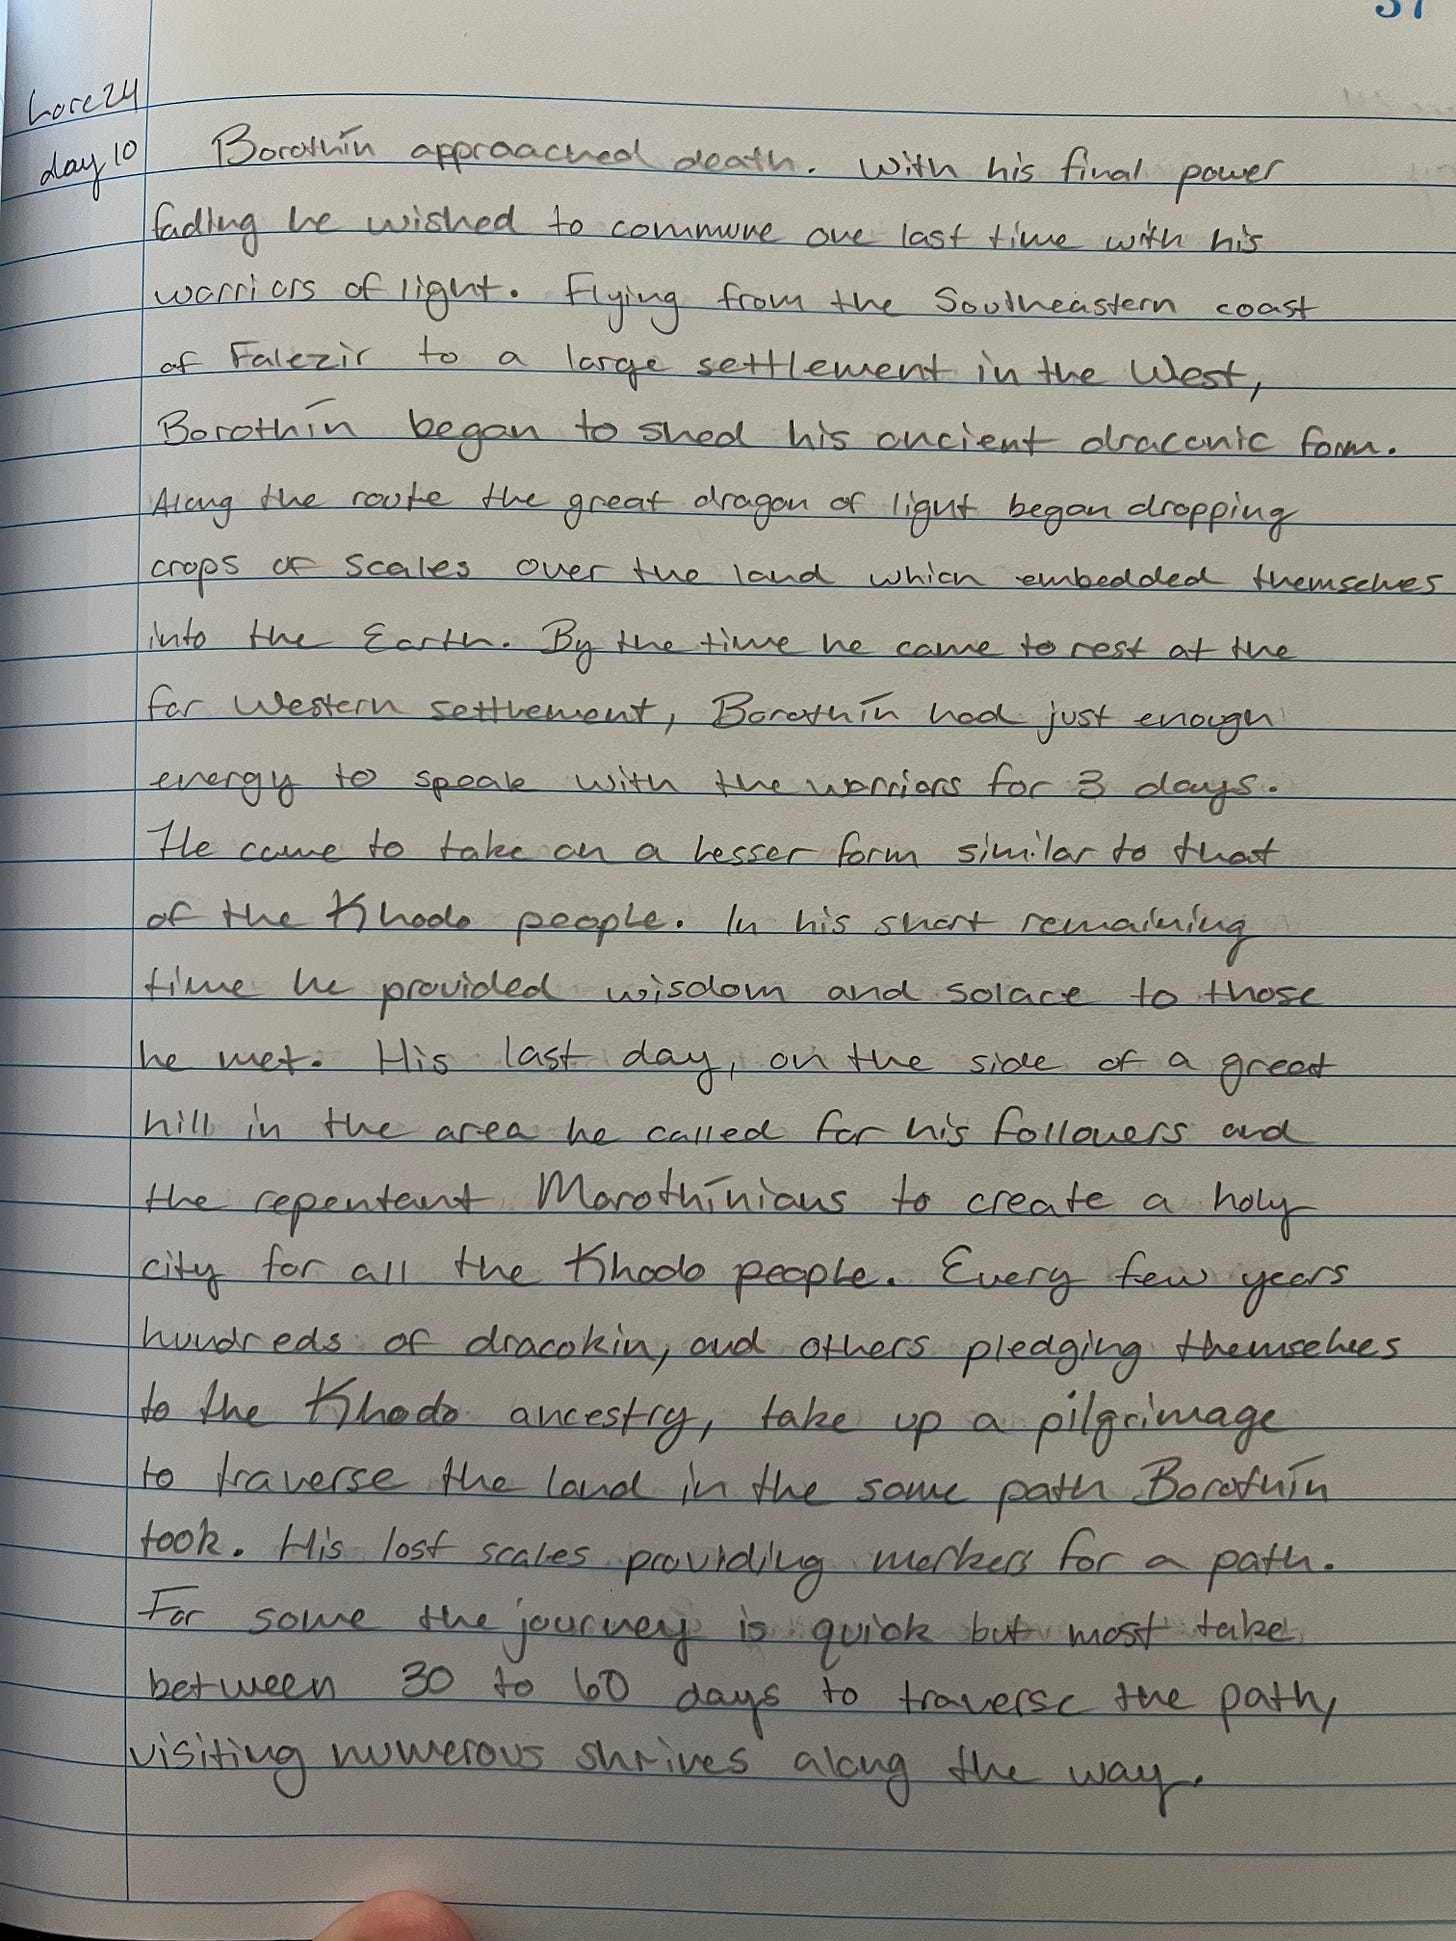 Lore24
day 10
Borothīn approached death. With his final power
fading he wished to commune one last time with his
warriors of light. Flying from the Southeastern coast
of Falezir to a large settlement in the West,
Borothīn began to shed his ancient draconic form.
Along the route the great dragon of light began dropping
crops of scales over the land which embedded themselves
into the Earth. By the time he came to rest at the
far Western settlement, Borothīn had just enough
energy to speak with the warriors for 3 days.
He came to take on a lesser form similar to that
of the Khodo people. In his short remaining
time he provided wisdom and solace to those
he met. His last day, on the side of a great
hill in the area he called for his followers and
the repentant Morothīnians to create a holy
city for all the Khodo people. Every few years
hundreds of dracokin, and others pledging themselves
to the Khodo ancestry, take up a pilgrimage
to traverse the land in the same path Borothīn
took. His lost scales providing markers for a path.
For some the journey is quick but most take
between 30 to 60 days to traverse the path,
visiting numerous shrines along the way.